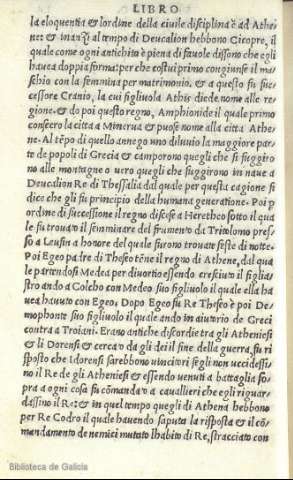 LIBRO
la eloquentia & lordine della civile disciplina è ad Athe⸗
nee & inãzi al tempo di Deucalion hebbono Cicopre, il
quale come ogni antichità è piena di favole dissono che egli
haveva doppia forma: per che costui primo congiunse il ma⸗
schio con la femmina per matrimonio. & a questo fu suc⸗
cessore Cranio, la cui figliuola Athis diede nome alle re⸗
gione. & do poi questo regno, Amphionide il quale primo
consecro la citta a Minerva & puose nome alla citta Athe⸗
ne. Al tẽpo di quello annego uno diluvio la maggiore par⸗
te de popoli di Grecia & camporono quegli che si fuggiro
no alle montagne o vero quegli che fuggirono in nave a
Deucalion Re di Thessalia dal quale per questa cagione si
dice che gli fu principio della humana generatione. Poi p
ordine di successione il regno discese a Heretheo sotto il qua
le fu trovato il semminare del frumento da Tritolomo pres⸗
so a Leusin a honore del quale furono trovate feste di notte.
Poi Egeo padre di Theseo tẽne il regno di Athene, dal qua
le partendosi Medea per divortio essendo cresciuto il figlia
stro ando a Colcho con Medeo suo figliuolo il quale ella ha
vea havuto con Egeo. Dopo Egeo fu Re Theseo è poi De⸗
mophonte suo figliuolo il quale ando in aiutorio de Greci
contra a Troiani. Erano antiche discordie tra gli Atheniesi
& li Dorensi & cercato da gli dei il fine della guerra, fu ri
sposto che i dorensi sarebbono vincitori se gli non uccidessi⸗
no il Re de gli Atheniesi & essendo venuti a battaglia so⸗
pra a ogni cosa fu cõmandato a cavallieri che egli riguar⸗
dassino il Re: & in quel tempo quegli di Athena hebbono
per Re Codro il quale havendo saputa la risposta & il cõ⸗
mandamento de nemici mutato lhabito di Re, stracciato con
Biblioteca de Galicia